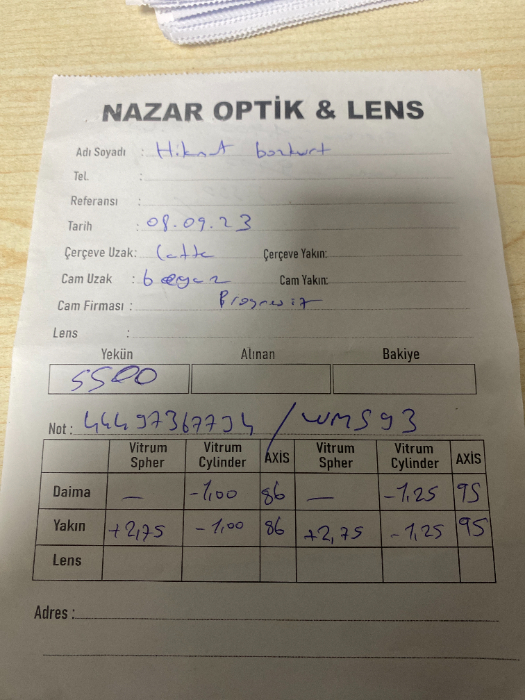 NAZAR OPTİK & LENS
Adı Soyadı : Hikmet bozkurt
Tel. :
Referansı :
Tarih : 08.09.23
Çerçeve Uzak: Çerçeve Yakın:
Cam Uzak : beyaz Cam Yakın:
Cam Firması : Progresif
Lens :
Yekün Alınan Bakiye
5500
Not : 44497367794 / WMS93
Vitrum Spher Vitrum Cylinder AXİS Vitrum Spher Vitrum Cylinder AXİS
Daima — -1,00 86 — -1,25 95
Yakın +2,75 -1,00 86 +2,75 -1,25 95
Lens
Adres :